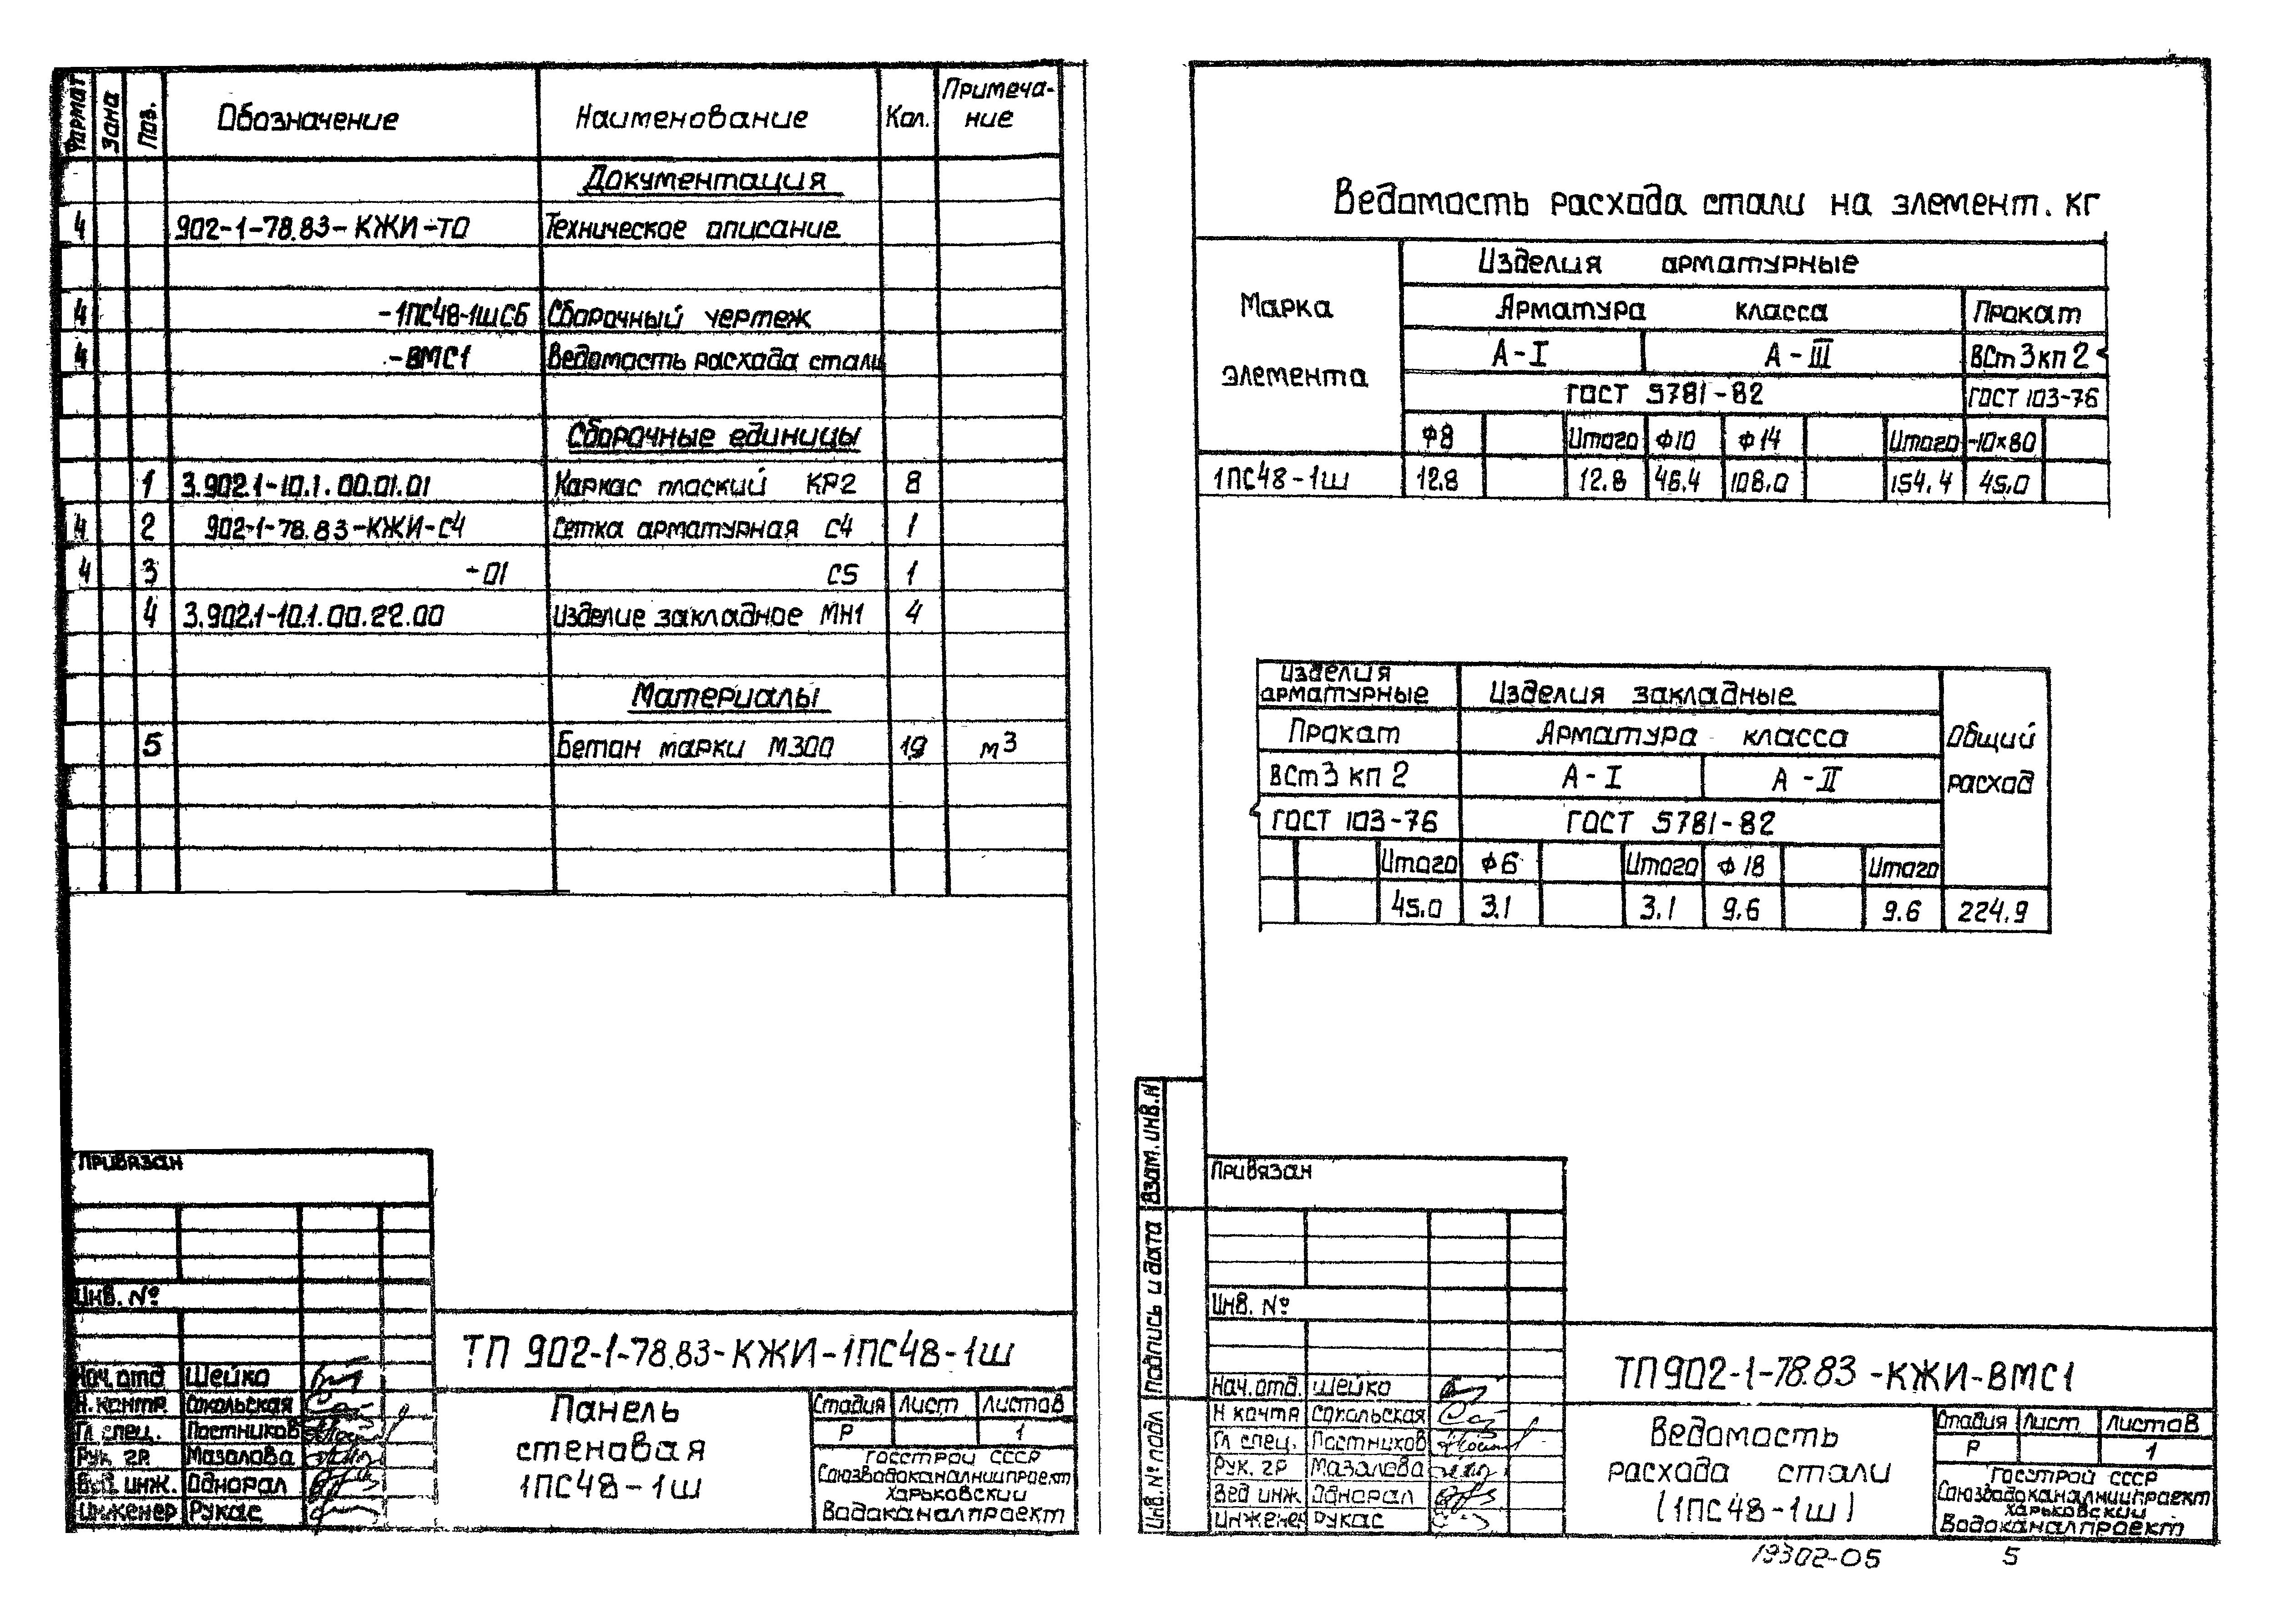 Формат Зона Поз. Обозначение Наименование Кол. Примеча-
ние
Документация
4 902-1-78.83-КЖИ-ТО Техническое описание
4 -1ПС48-1шСБ Сборочный чертеж
4 -ВМС1 Ведомость расхода стали
Сборочные единицы
1 3.902.1-10.1.00.01.01 Каркас плоский КР2 8
4 2 902-1-78.83-КЖИ-С4 Сетка арматурная С4 1
4 3 -01 С5 1
4 3.902.1-10.1.00.22.00 Изделие закладное МН1 4
Материалы
5 Бетон марки М300 1,9 м3
Привязан
Инв. №
Нач. отд Шейко
Н. контр. Сокольская
Гл спец. Постников
Рук. гр. Мазалова
Вед. инж. Однорал
Инженер Рукас
ТП 902-1-78.83-КЖИ-1ПС48-1ш
Панель
стеновая
1ПС48-1ш
Стадия Лист Листов
Р 1
Госстрой СССР
Союзводоканалниипроект
Харьковский
Водоканалпроект
Ведомость расхода стали на элемент. кг
Марка
элемента
Изделия арматурные
Арматура класса Прокат
А-I А-III ВСт3кп2
ГОСТ 5781-82 ГОСТ 103-76
Ф8 Итого Ф10 Ф14 Итого -10×80
1ПС48-1ш 12.8 12.8 46.4 108.0 154.4 45.0
Изделия
арматурные Изделия закладные
Прокат Арматура класса Общий
расход
ВСт3кп2 А-I А-II
ГОСТ 103-76 ГОСТ 5781-82
Итого Ф6 Итого Ф18 Итого
45.0 3.1 3.1 9.6 9.6 224.9
Взам. инв. N
Подпись и дата
Инв. № подл
Привязан
Инв. №
Нач. отд. Шейко
Н контр Сокольская
Гл спец. Постников
Рук. гр Мазалова
Вед инж. Однорал
Инженер Рукас
ТП 902-1-78.83-КЖИ-ВМС1
Ведомость
расхода стали
(1ПС48-1ш)
Стадия Лист Листов
Р 1
Госстрой СССР
Союзводоканалниипроект
Харьковский
Водоканалпроект
19302-05 5